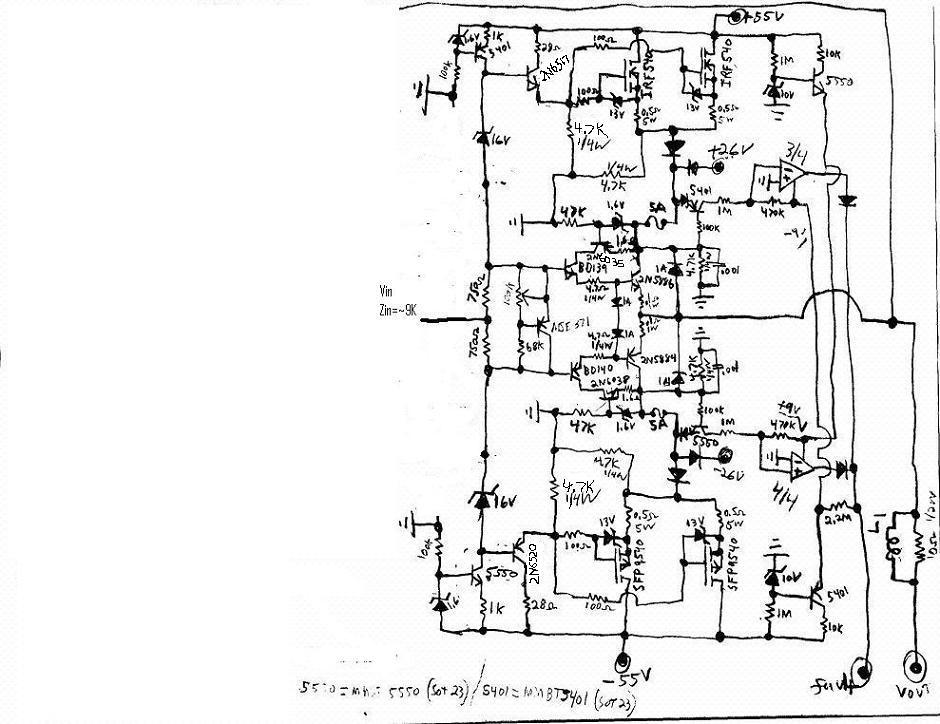 +55V
1.6V
1K
5401
100K
28Ω
2N6517
100Ω
IRF540
IRF540
1M
10K
5550
10V
100Ω
13V
0.5Ω
5W
13V
0.5Ω
5W
4.7K
1/4W
16V
1/4W
4.7K
+26V
3/4
5401
1M
470K
-9V
47K
1.6V
5A
100K
1.6Ω
2N6035
BD139
4.7Ω
1/4W
2N5886
1A
4.7K
.001
Vin
Zin=~9K
750Ω
750Ω
68K
1A
1A
4.7Ω
1/4W
2N5884
BD140
2N6038
1.6Ω
1A
4.7K
.001
47K
1.6V
5A
100K
5550
1M
+9V
470K
-26V
4/4
4.7K
1/4W
4.7K
1/4W
16V
0.5Ω
5W
0.5Ω
5W
13V
13V
100Ω
SFP9540
SFP9540
2.2M
L1
10Ω
1/20W
100K
5550
2N6520
1.6
1K
28Ω
100Ω
10V
1M
5401
10K
-55V
Fault
Vout
5550 = MMBT 5550 (SOT23) / 5401 = MMBT5401 (SOT23)